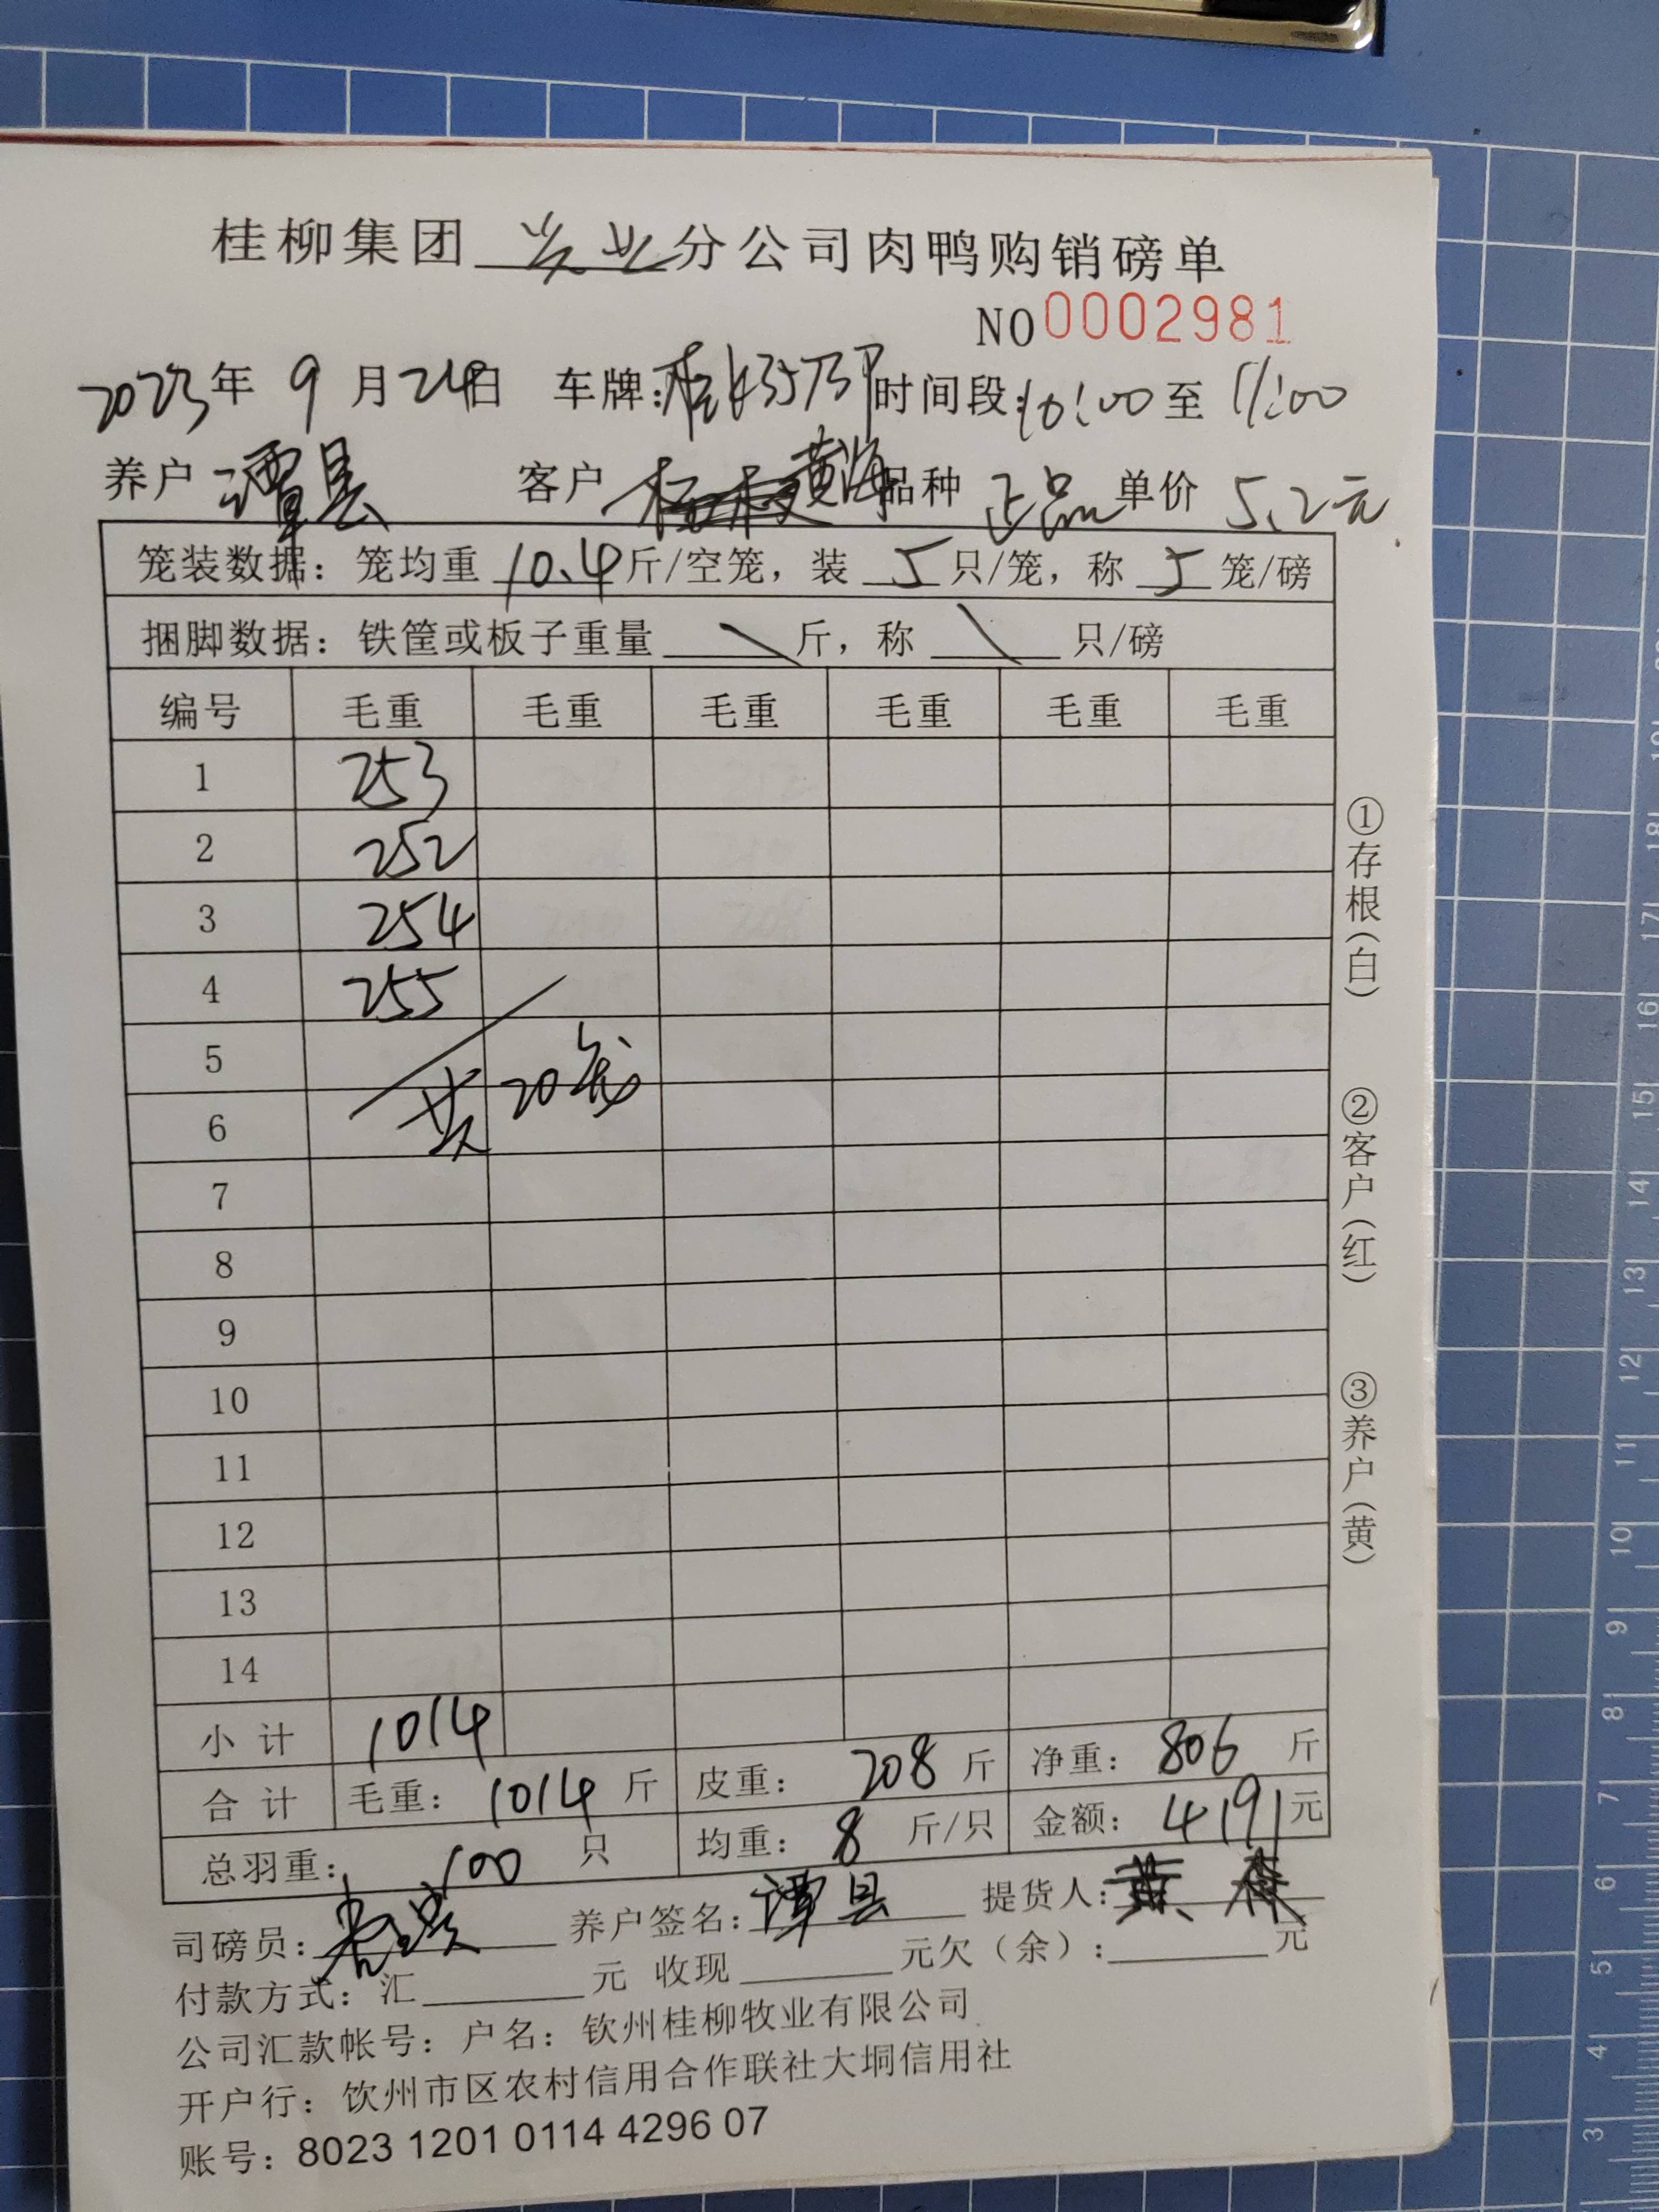 桂柳集团 分公司肉鸭购销磅单
NO 0002981
2023年 9 月 24日 车牌: 时间段:10:00 至 11:00
养户 谭县 客户 黄海 品种 正品 单价 5.2元
笼装数据：笼均重 10.4 斤/空笼，装 5 只/笼，称 5 笼/磅
捆脚数据：铁筐或板子重量 \ 斤，称 \ 只/磅
编号 毛重 毛重 毛重 毛重 毛重 毛重
1 253
2 252
3 254
4 255
5
6 共20笼
7
8
9
10
11
12
13
14
小计 1014
合计 毛重：1014 斤 皮重：208 斤 净重：806 斤
总羽重：100 只 均重：8 斤/只 金额：4191元
司磅员： 养户签名：谭县 提货人：黄
付款方式：汇 元 收现 元欠（余）： 元
公司汇款帐号：户名：钦州桂柳牧业有限公司
开户行：饮州市区农村信用合作联社大垌信用社
账号：8023 1201 0114 4296 07
①存根（白）
②客户（红）
③养户（黄）
19
18
17
16
15
14
13
12
11
10
9
8
7
6
5
4
3